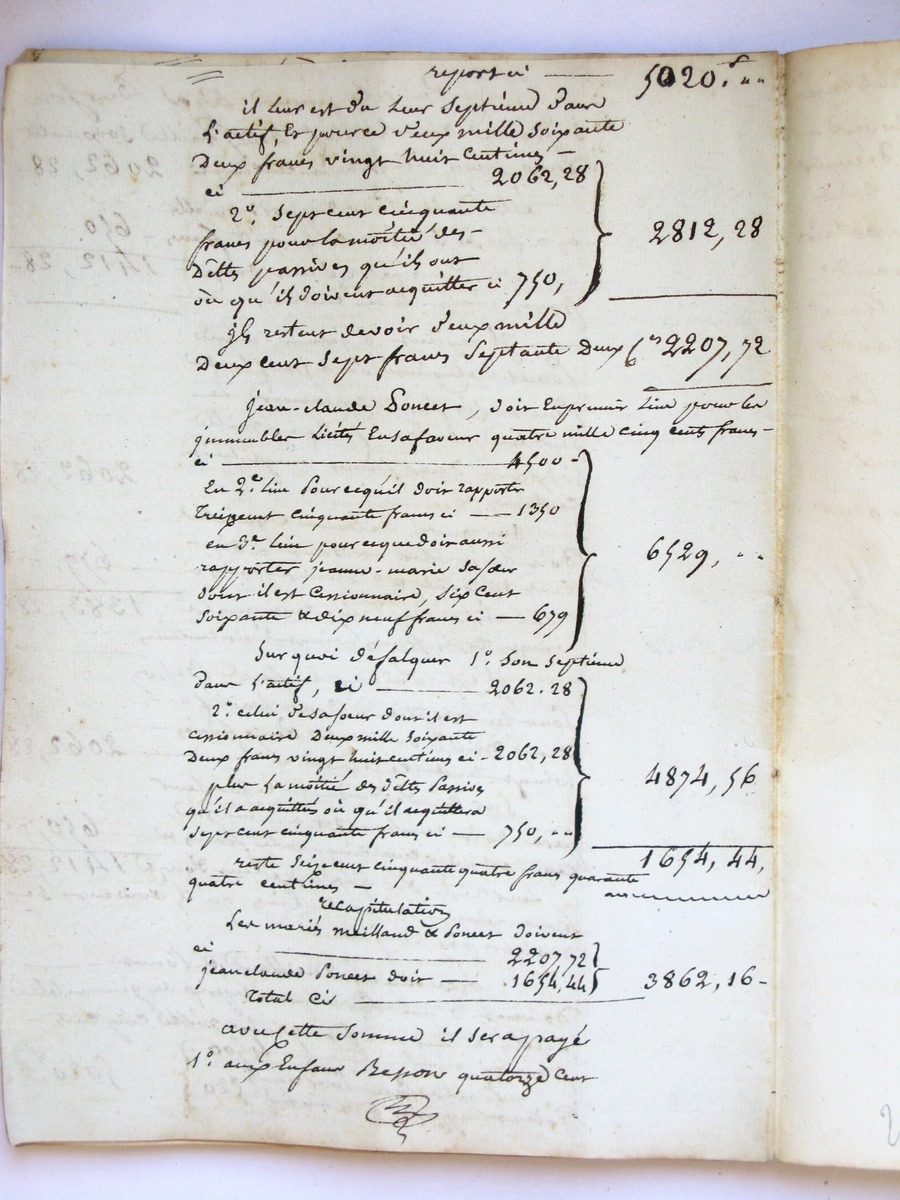 report ci ——— 5020 f. "
il leur est du leur Septième dans
L'actif, Et pource deux mille Soixante
Deux francs vingt huit Centimes —
ci ——— 2062,28
2°. Sept cent cinquante
francs pour la moitié des
Dettes passives qu'ils ont
où qu'ils doivent acquitter ci 750,
2812,28
ils restent devoir deux mille
Deux cent Sept francs Septante Deux 2207,72
jean-claude Poncet, doit En premier Lieu pour les
jmmeubles Licités En sa faveur quatre mille cinq cents francs —
ci ——— 4500 -
En 2e. Lieu Pour ce qu'il doit rapporter
treize cent cinquante francs ci —— 1350
en 3e. Lieu pour ce que doit aussi
rapporter jeanne-marie sa sœur
dont il est Cessionnaire, Six Cent
Soixante & dix neuf francs ci — 679
6529, "
Sur quoi défalquer 1°. Son Septième
dans L'actif, ci ——— 2062.28
2°. celui de sa sœur dont il est
cessionnaire Deux mille Soixante
Deux francs vingt huit centimes ci - 2062,28
plus La moitié des dettes Passives
qu'il a acquittés où qu'il acquittera
Sept cent cinquante francs ci — 750, "
4874,56
reste Seize cent cinquante quatre francs quarante 1654,44,
quatre centimes —
recapitulation
Les mariés meilland & Poncet doivent
ci ——— 2207,72
jean claude Poncet doit —— 1654,44
Total ci ——— 3862,16-
avec Cette Somme il sera payé
1°. aux Enfans Besson quatorze Cent